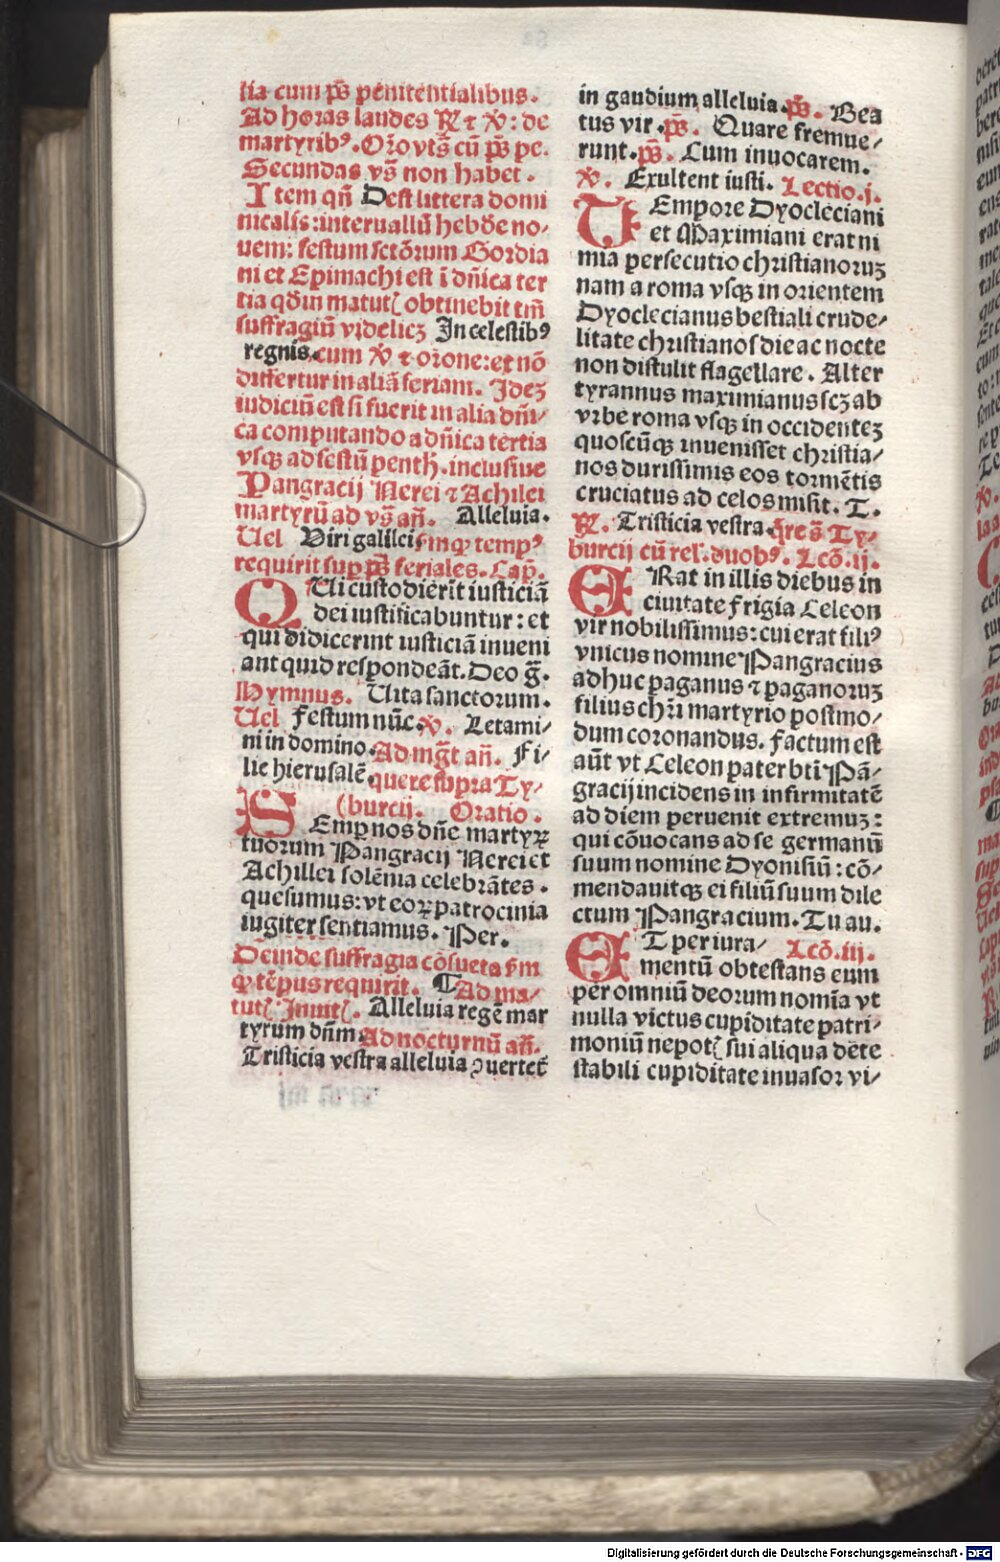 lia cum ps̄ penitentialibus.
Ad horas laudes ℟ ⁊ ℣: de
martyribꝰ. Or̄o vts̄ cū ps̄ pe.
Secundas vs̄ non habet.
Item qn̄ Dest littera domi
nicalis: interuallū hebdōe no⸗
uem: festum sctōrum Gordia
ni et Epimachi est ī dn̄ica ter
tia qd̄ in matutꝭ obtinebit tm̄
suffragiū videlicꝫ In celestibꝰ
regnis. cum ℣ ⁊ or̄one: et nō
differtur in aliā feriam. Ideꝫ
iudiciū est si fuerit in alia dn̄i⸗
ca computando a dn̄ica tertia
vsqꝫ ad festū penth̄. inclusiue
Pangracij Nerei ⁊ Achilei
martyrū ad vs̄ an̄. Alleluia.
Uel Viri galilei sinqꝫ tempꝰ
requirit suꝑ ps̄ feriales. Cap̄.
QUi custodierīt iusticiā
dei iustificabuntur: et
qui didicerint iusticiā inueni
ant quid respondeāt. Deo ḡ.
Hymnus. Uita sanctorum.
Uel Festum nūc. ℣. Letami⸗
ni in domino. Ad mḡt an̄. Fi⸗
lie hierusalē. quere supra Ty⸗
(burcij. Oratio.
SEmꝑ nos dn̄e martyrꝝ
tuorum Pangracij Nerei et
Achillei solēnia celebrātes.
quesumus: vt eoꝝ patrocinia
iugiter sentiamus. Per.
Deinde suffragia cōsueta ẜm
ꝙ tēpus requirit. ¶ Ad ma⸗
tutꝭ Inuitꝭ. Alleluia regē mar
tyrum dn̄m Ad nocturnū an̄.
Tristicia vestra alleluia ꝯuertet̄
in gaudium alleluia. ps̄. Bea
tus vir. ps̄. Quare fremue⸗
runt. ps̄. Cum inuocarem.
℣. Exultent iusti. Lectio .j.
TEmpore Dyocleciani
et Maximiani erat ni
mia persecutio christianoruꝫ
nam a roma vsqꝫ in orientem
Dyoclecianus bestiali crude⸗
litate christianos die ac nocte
non distulit flagellare. Alter
tyrannus maximianus scꝫ ab
vrbe roma vsqꝫ in occidenteꝫ
quoscūqꝫ inuenisset christia⸗
nos durissimis eos tormētis
cruciatus ad celos misit. T.
℟. Tristicia vestra. q̄re s̄ Ty⸗
burcij cū rel̄. duobꝰ. Lcō .ij.
ERat in illis diebus in
ciuitate frigia Celeon
vir nobilissimus: cui erat filiꝰ
vnicus nomine Pangracius
adhuc paganus ⁊ paganoruꝫ
filius chr̄i martyrio postmo⸗
dum coronandus. Factum est
aūt vt Celeon pater bt̄i Pā⸗
gracij incidens in infirmitatē
ad diem peruenit extremuꝫ:
qui cōuocans ad se germanū
suum nomine Dyonisiū: cō⸗
mendauit qꝫ ei filiū suum dile
ctum Pangracium. Tu au.
ET per iura⸗ Lcō .iij.
mentū obtestans eum
per omniū deorum nomīa vt
nulla victus cupiditate patri⸗
moniū nepotꝭ sui aliqua dete
stabili cupiditate inuasor vi⸗
Digitalisierung gefördert durch die Deutsche Forschungsgemeinschaft - DFG